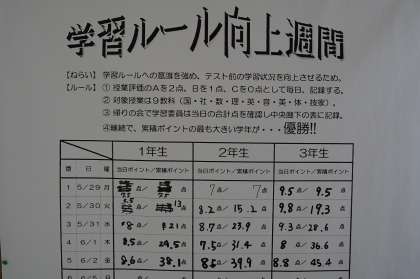 学習ルール向上週間
【ねらい】 学習ルールへの意識を強め、テスト前の学習状況を向上させるため。
【ルール】 ① 授業評価のAを2点、Bを1点、Cを0点として毎日、記録する。
② 対象授業は9教科（国・社・数・理・英・音・美・体・技家）。
③ 帰りの会で学習委員は当日の合計点を確認し中央廊下の表に記録。
④ 継続で、累積ポイントの最も大きい学年が・・・優勝!!
1年生 2年生 3年生
週 日 曜 当日ポイント/累積ポイント 当日ポイント/累積ポイント 当日ポイント/累積ポイント
1 5/29 月 点/ 点 7点/ 7点 9.5点/ 9.5点
2 5/30 火 点/ 13点 8.2点/ 15.2点 9.8点/ 19.3点
3 5/31 水 8点/ 21点 8.7点/ 23.9点 9.3点/ 28.6点
4 6/1 木 8.5点/ 29.5点 7.5点/ 31.4点 8点/ 36.6点
5 6/2 金 8.6点/ 38.1点 8.5点/ 39.9点 8.8点/ 45.4点